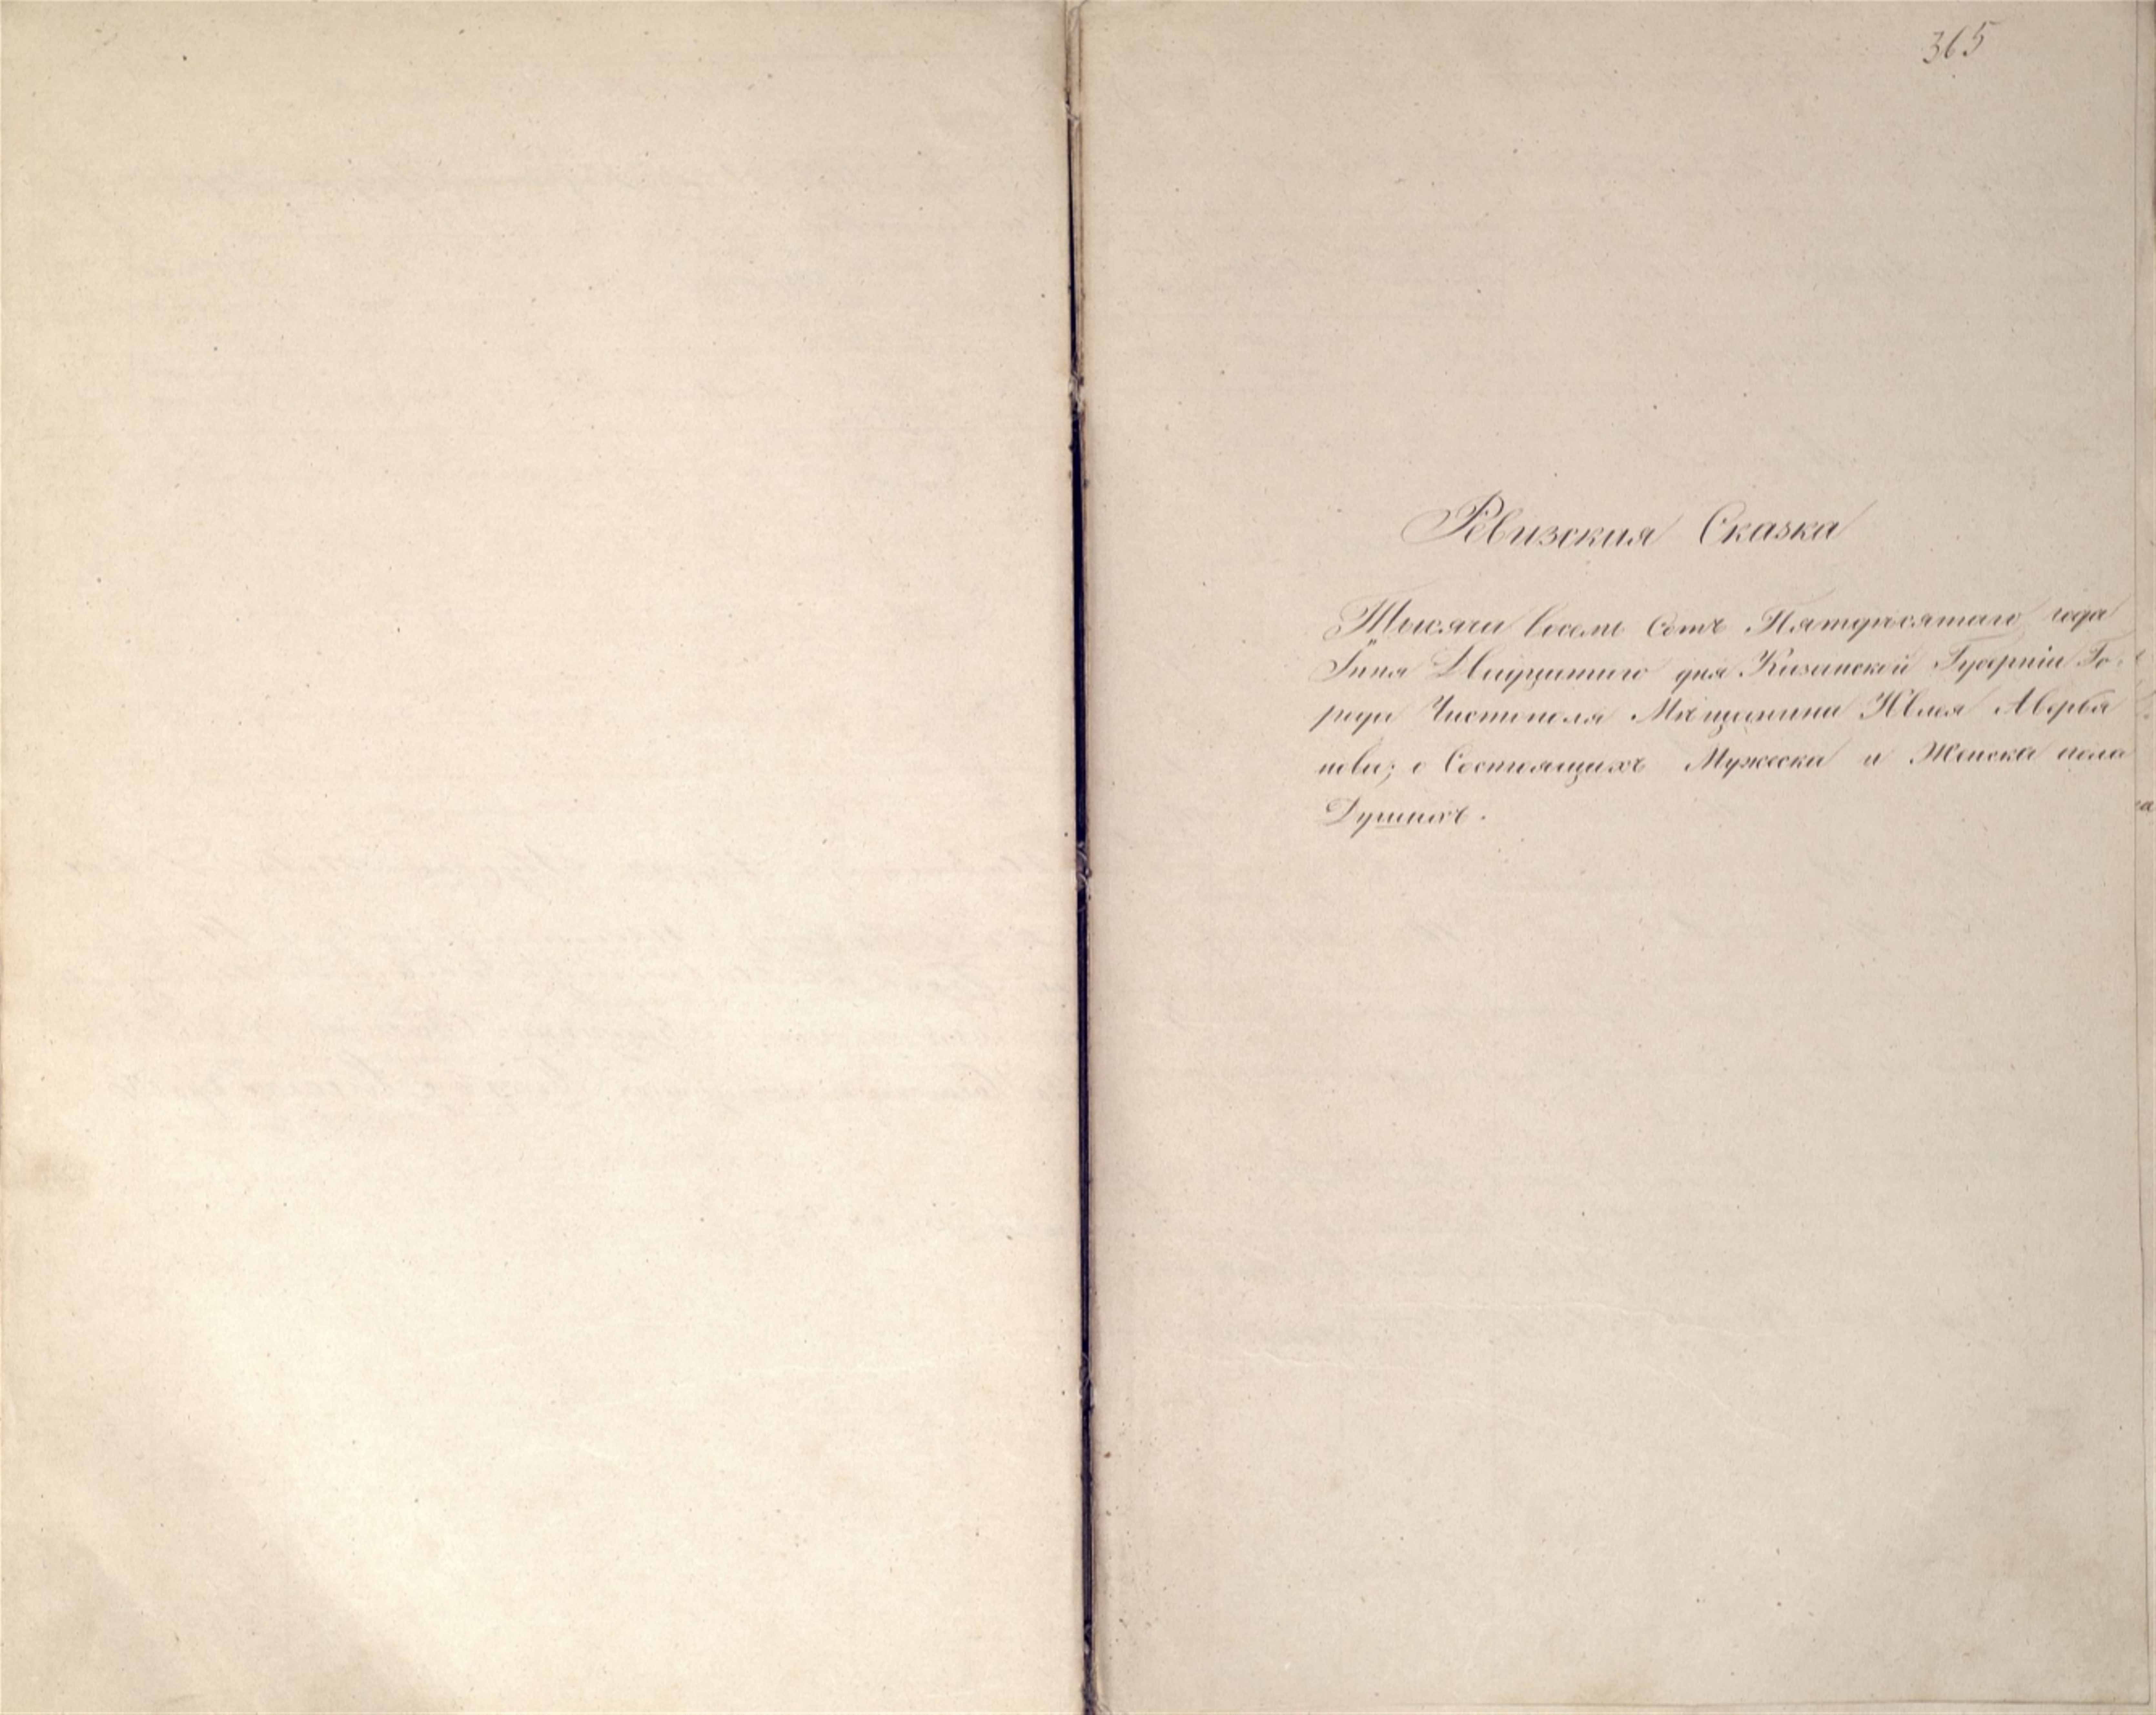 365
Ревизская Сказка
Тысячи восемь Сотъ Пятдесятаго года
Іюня Двадцатаго дня Казанской Губерніи Го-
рода Чистополя Мѣщанина Авербя
нова; о Состоящихъ Мужеска и Женска пола
Душахъ.